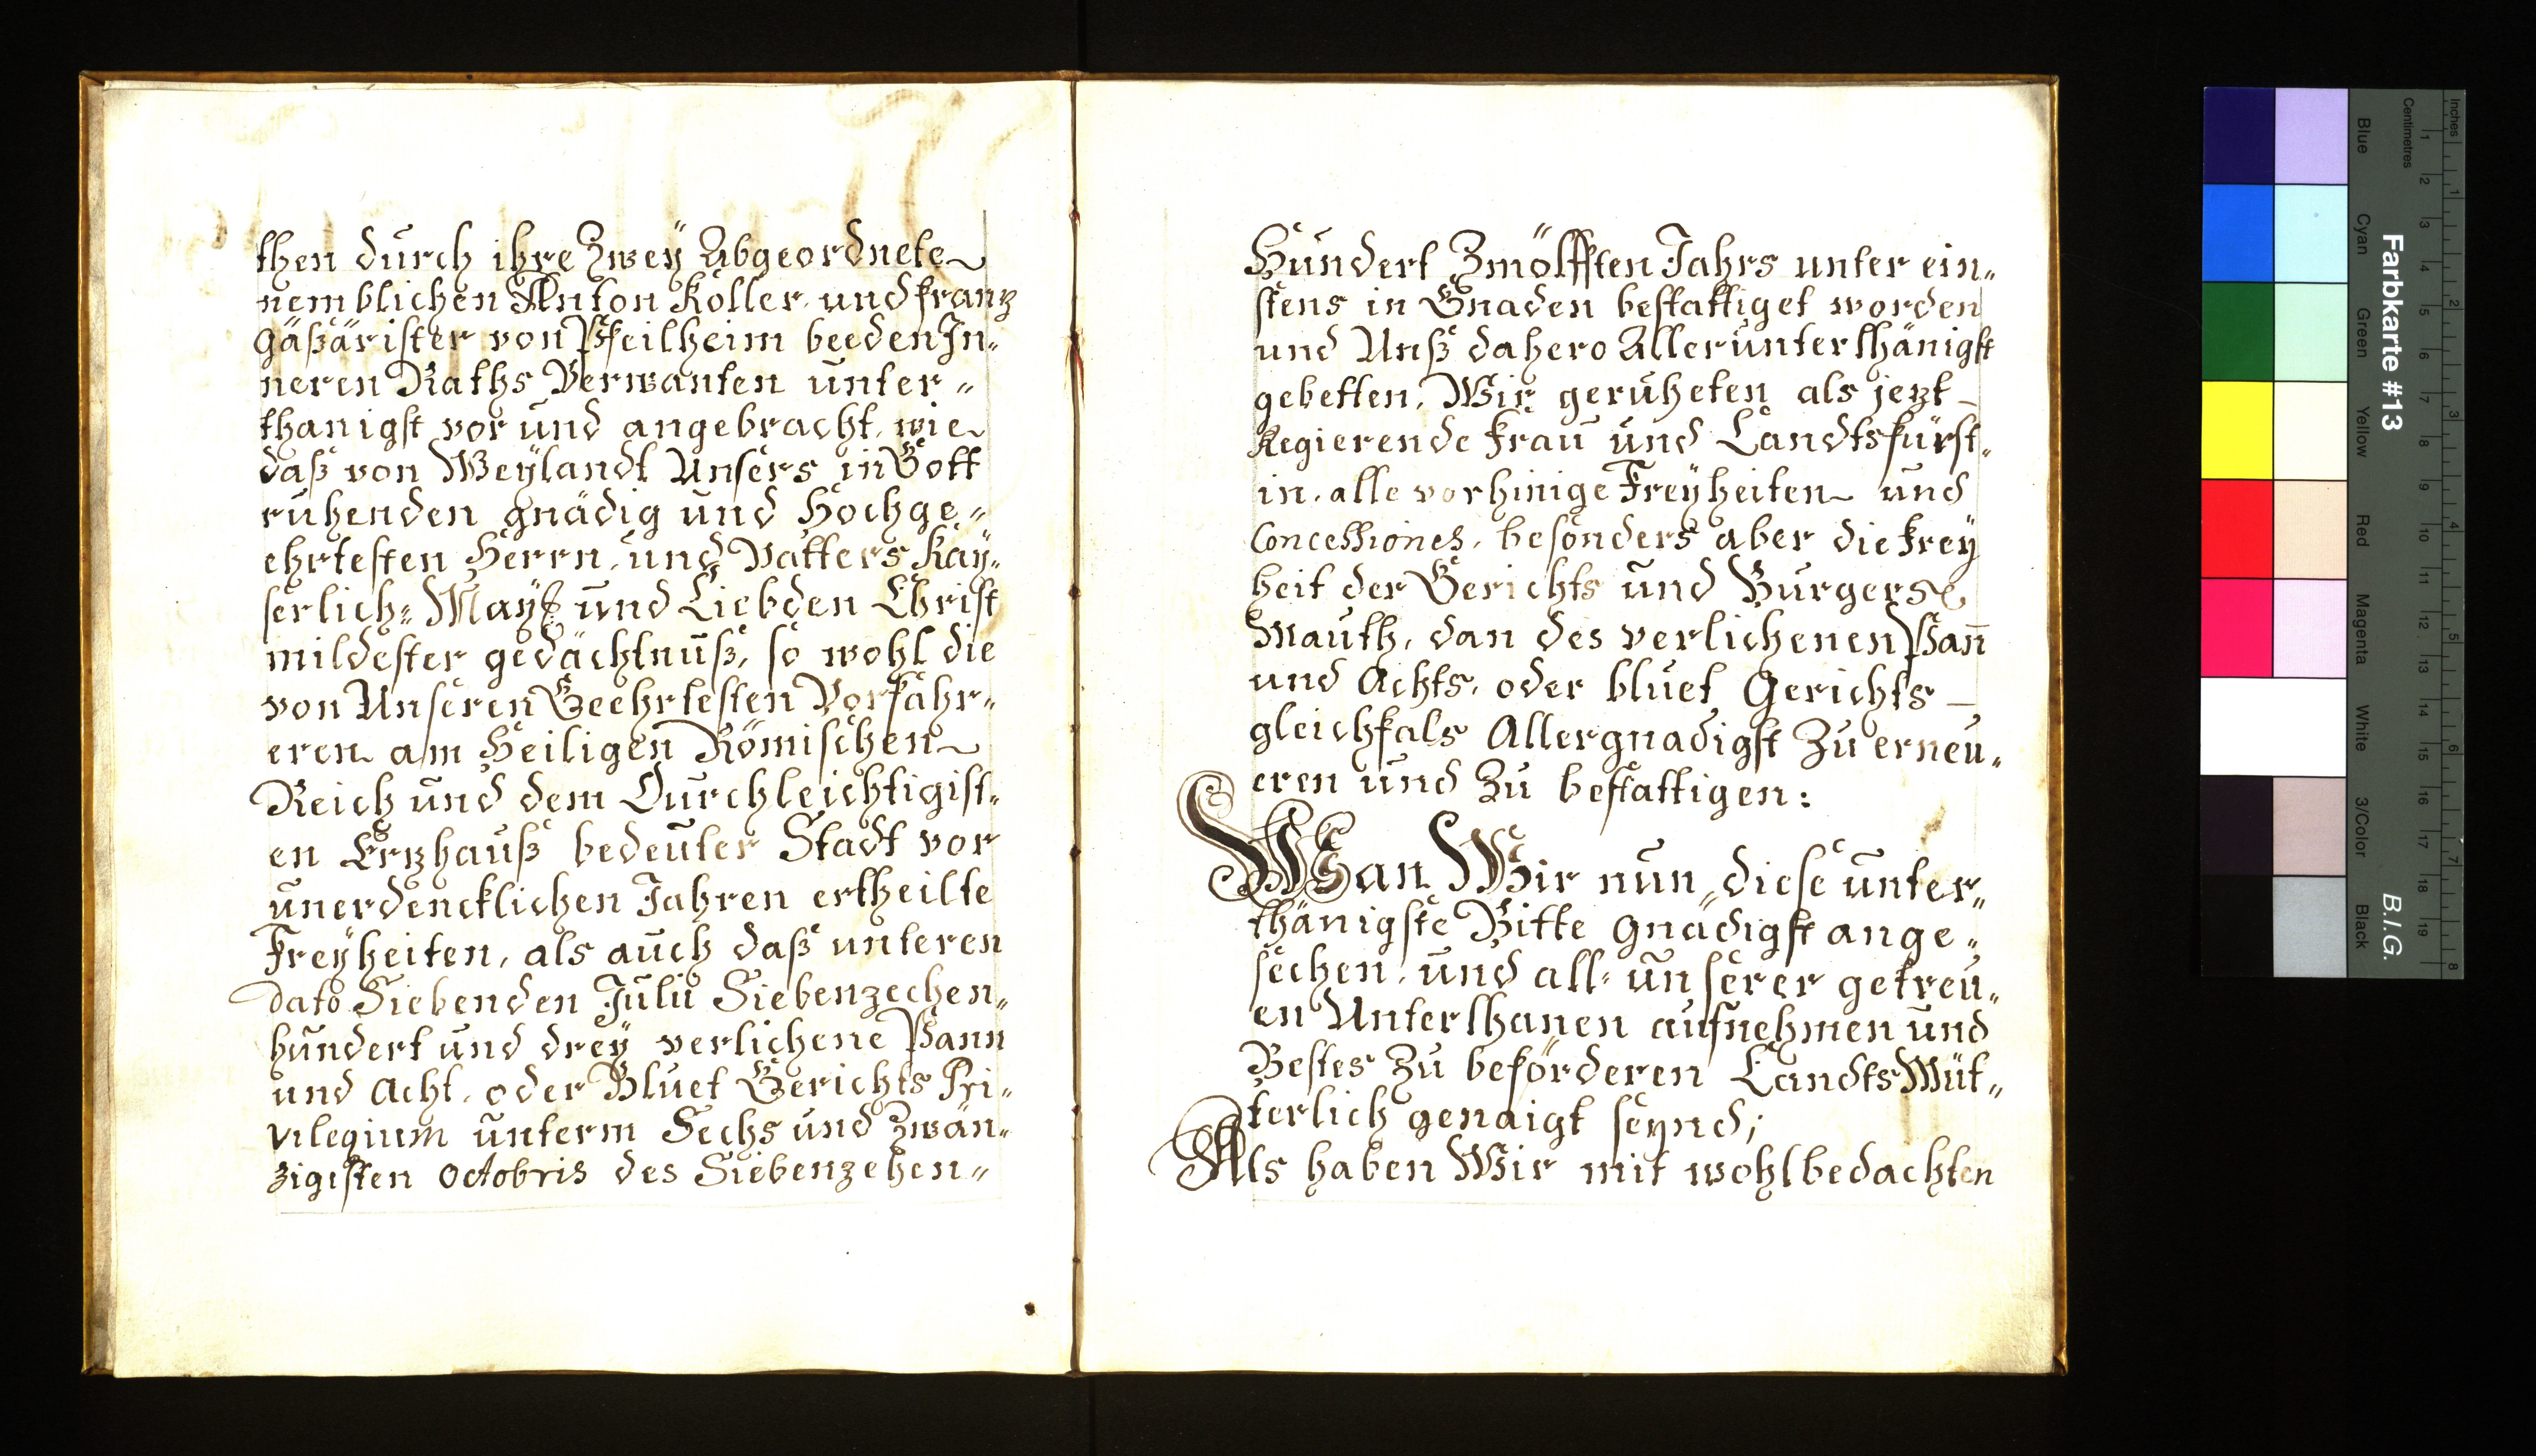 then durch ihre Zweÿ Abgeordnete
nemblichen Anton Koller, und Frantz
Gäßärister von Pfeilheim beeden In„
neren Raths Verwanten unter„
thanigst vor und angebracht, wie
daß von Weÿlandt Unsers in Gott
ruhenden gnädig und Hochge„
ehrtesten Herrn, und Vatters Kaÿ„
serlich„ Maÿst: und Liebden Christ
mildester gedächtnuß, so wohl die
von Unseren Geehrtesten Vorfahr„
eren am Heiligen Römischen
Reich und dem Durchleichtigist„
en Ertzhauß bedeuter Stadt vor
unerdencklichen Jahren ertheilte
Freÿheiten, als auch daß unteren
dato Siebenden Julii Siebenzechen„
hundert und dreÿ verlichene Pann
und Acht, oder Bluet Gerichts Pri„
vilegium unterm Sechs und Zwän„
zigisten Octobris des Siebenzehen„
Hundert Zwölfften Jahrs unter ein„
stens in Gnaden bestattiget worden
und Unß dahero Allerunterthänigst
gebetten, Wir geruheten als jetzt
Regierende Frau und Landtsfürst„
in, alle vorhinige Freÿheiten und
Concessiones, besonders aber die Freÿ
heit der Gerichts und Burgers
Mauth, dan des verlichenen Pan̄
und Achts, oder bluet Gerichts
gleichfals Allergnadigst Zu erneu„
eren und Zu bestattigen:
Wan Wir nun, diese unter„
thänigste Bitte Gnädigst ange„
sechen, und all„ unserer getreu„
en Unterthanen aufnehmen und
Bestes Zu beförderen Landts Müt„
terlich genaigt seynd;
Als haben Wir mit wohlbedachten
Farbkarte #13
B.I.G.
Inches
Centimetres
1 2 3 4 5 6 7 8
1 2 3 4 5 6 7 8 9 10 11 12 13 14 15 16 17 18 19
Blue Cyan Green Yellow Red Magenta White 3/Color Black